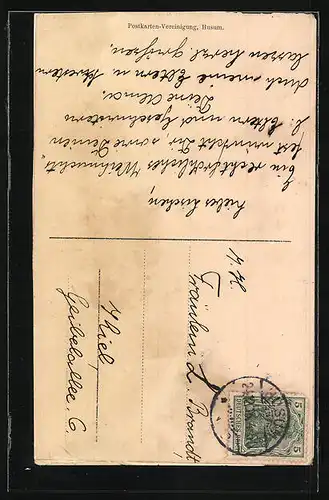 Postkarten-Vereinigung, Husum.
Liebes Lieschen,
Ein recht fröhliches Weihnachts-
fest wünscht Dir, sowie Deinen
l. Eltern und Geschwistern
Deine Alma.
Auch meine Eltern u. Schwestern
lassen herzl. grüßen.
Fräulein L. Brandt,
Kiel,
Geibelallee 6.
5
5